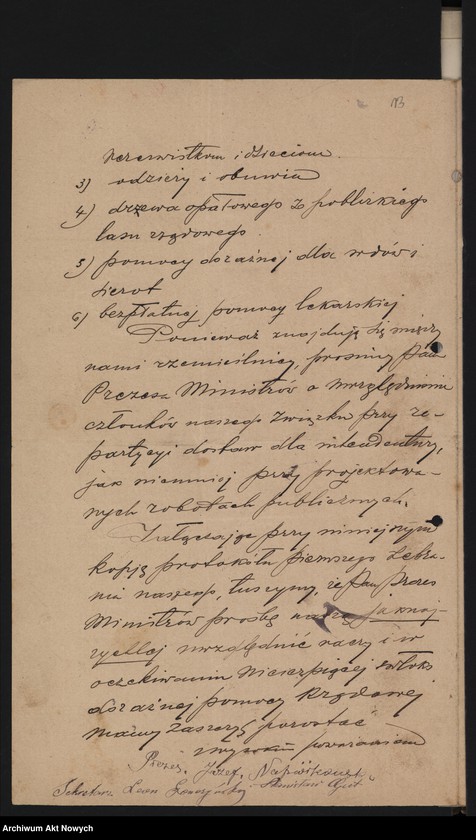 113
i dzieciom.
3) odzieży i obuwia
4) drzewa opałowego z pobliskiego
lasu rządowego.
5) pomocy doraźnej dla wdów i
sierot
6) bezpłatnej pomocy lekarskiej
Ponieważ znajdują się między
nami rzemieślnicy, prosimy Pana
Prezesa Ministrów o uwzględnienie
członków naszego Związku przy re-
partycyi dostaw dla intendentury,
jak niemniej przy projektowa-
nych robotach publicznych.
Załączając przy niniejszym
kopję protokółu pierwszego Zebra-
nia naszego, tuszymy, że Pan Prezes
Ministrów prośbę naszę jaknaj-
rychlej uwzględnić raczy i w
oczekiwaniu niecierpiącej zwłoki
doraźnej pomocy Rządowej
mamy zaszczyt pozostać
z wysokim poważaniem
Prezes, Józef
Sekretarz Leon
Archiwum Akt Nowych